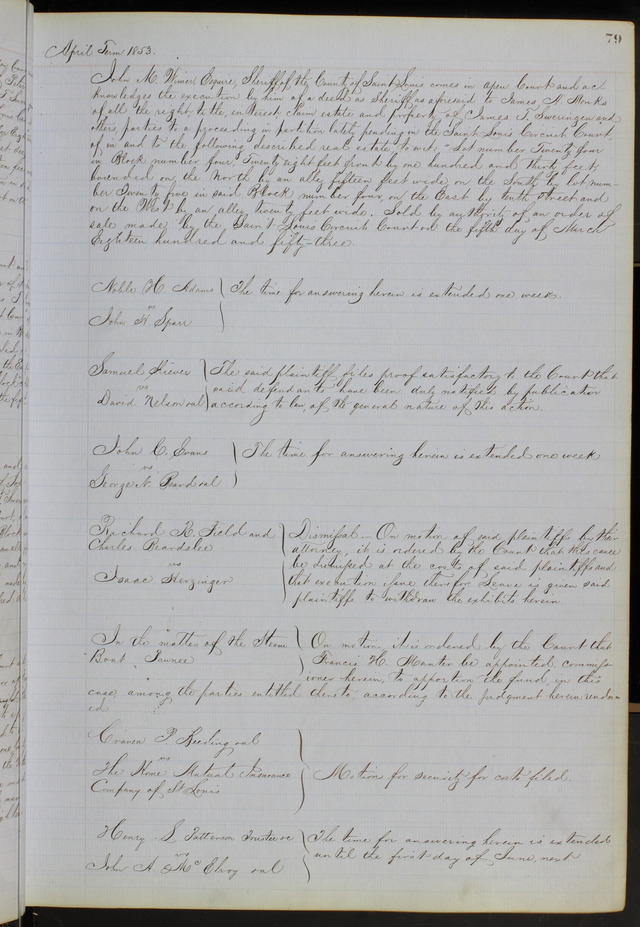 79
April Term 1853.
John M. Wimer Esquire, Sheriff of the County of Saint Louis comes in open Court and ac-
knowledges the execution by him of a deed as Sheriff as aforesaid to James A. Monks
of all the right, title, interest, claim estate and property of James T. Sweringen and
others parties to a proceeding in partition lately pending in the Saint Louis Circuit Court,
of in and to the following described real estate to wit, "Lot number Twenty four
in Block number four Twenty eight feet front by one hundred and thirty feet,
bounded on the North by an alley fifteen feet wide, on the South by lot num-
ber Twenty five in said Block number four, on the East by Tenth Street and
on the West by an alley twenty feet wide. Sold by authority of an order of
sale made by the Saint Louis Circuit Court on the fifth day of March
Eighteen hundred and fifty three.
Noble H. Adams The time for answering herein is extended one week.
vs
John H Sparr
Samuel Kiever The said plaintiff files proof satisfactory to the Court that
vs said defendants have been duly notified by publication
David Nelson et al according to law, of the general nature of this action.
John C. Evans The time for answering herein is extended one week
vs
George N. et al
Richard R. Field and Dismissal — On motion of said plaintiffs by their
Charles Beardslee attorney, it is ordered by the Court that this cause
vs be dismissed at the costs of said plaintiffs and
Isaac Herzinger that execution issue therefor. Leave is given said
plaintiffs to withdraw the exhibits herein
In the matter of the Steam On motion it is ordered by the Court that
Boat Francis H. Manter be appointed commiss-
ioner herein, to apportion the fund in this
case among the parties entitled thereto, according to the judgment herein render-
ed
Craven P. et al
vs
The Home Mutual Insurance Motion for security for costs filed.
Company of St Louis
Henry L Patterson Trustee vc The time for answering herein is extended
vs until the first day of June next
John A McElroy et al